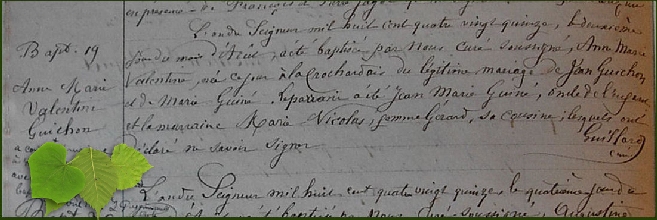 en présence de François
L'an du Seigneur mil huit cent quatre vingt quinze, le deuxième
Bapt. 19
jour du mois d'Avril, a été baptisée par nous curé soussigné, Anne Marie
Valentine, née ce jour à la Crochardais du légitime mariage de Jean Guichon
Anne Marie
et de Marie Guiné. Le parrain a été Jean Marie Guiné, oncle de l'enfant
Valentine
et la marraine Marie Nicolas, femme Gérard, sa cousine, lesquels ont
Guichon
déclaré ne savoir signer
Guillard
L'an du Seigneur mil huit cent quatre vingt quinze, le quatrième jour du
été baptisé par Nous Curé soussigné Augustine